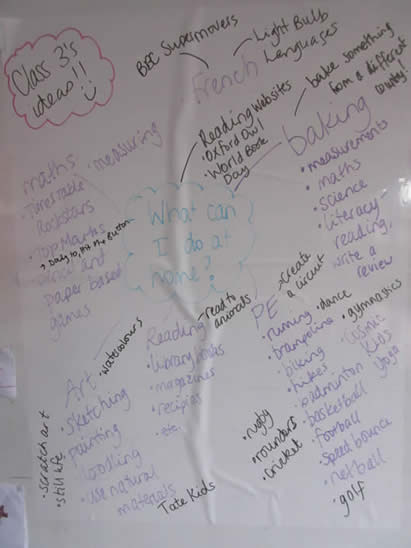 Class 3's
ideas!!
BBC Supermovers
Light Bulb
Languages
French
Reading Websites
• Oxford Owl
• World Book
Day
bake something
from a different
country!
baking
• measurements
• maths
• science
• literacy
reading,
write a
review
maths
measuring
Times table
Rockstars
Top Marks
→ Daily 10, Hit the Button
paper based
games
What can
I do at
home?
Art
watercolours
• sketching
• painting
• doodling
• use natural
materials
• scratch art
• still life
Tate Kids
Reading
read to
animals
• library books
• magazines
• recipies
• etc.
PE
create
a circuit
• running
• trampoline
• biking
• hikes
• badminton
• basketball
• football
• speed bounce
• netball
• golf
• dance
• gymnastics
Cosmic
Kids
Yoga
• rugby
• rounders
• cricket